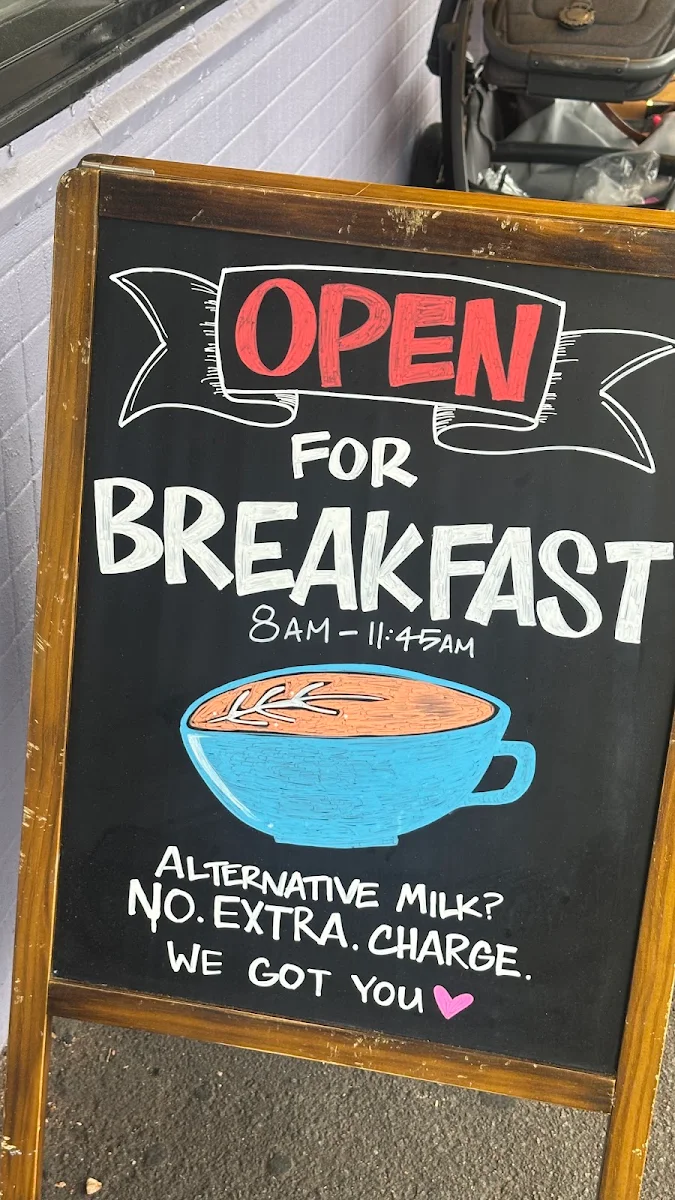 OPEN
FOR
BREAKFAST
8AM - 11:45AM
ALTERNATIVE MILK?
NO. EXTRA. CHARGE.
WE GOT YOU